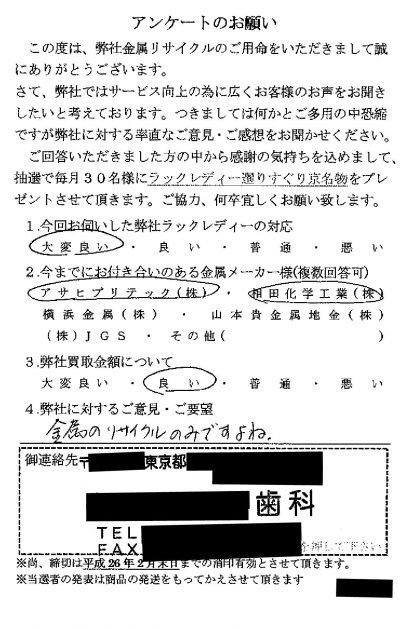 アンケートのお願い
この度は、弊社金属リサイクルのご用命をいただきまして誠
にありがとうございます。
さて、弊社ではサービス向上の為に広くお客様のお声をお聞き
したいと考えております。つきましては何かとご多用の中恐縮
ですが弊社に対する率直なご意見・ご感想をお聞かせください。
ご回答いただきました方の中から感謝の気持ちを込めまして、
抽選で毎月30名様にラックレディー選りすぐり京名物をプレ
ゼントさせて頂きます。ご協力、何卒宜しくお願い致します。
1.今回お伺いした弊社ラックレディーの対応
大変良い ・ 良い ・ 普通 ・ 悪い
2.今までにお付き合いのある金属メーカー様(複数回答可)
アサヒプリテック(株) ・ 相田化学工業(株)
横浜金属(株) ・ 山本貴金属地金(株)
(株)JGS ・ その他( )
3.弊社買取金額について
大変良い ・ 良い ・ 普通 ・ 悪い
4.弊社に対するご意見・ご要望
金属のリサイクルのみですよね.
御連絡先〒 東京都
歯科
TEL
FAX を押して下さい
※尚、締切は平成26年2月末日までの消印有効とさせて頂きます。
※当選者の発表は商品の発送をもってかえさせて頂きます